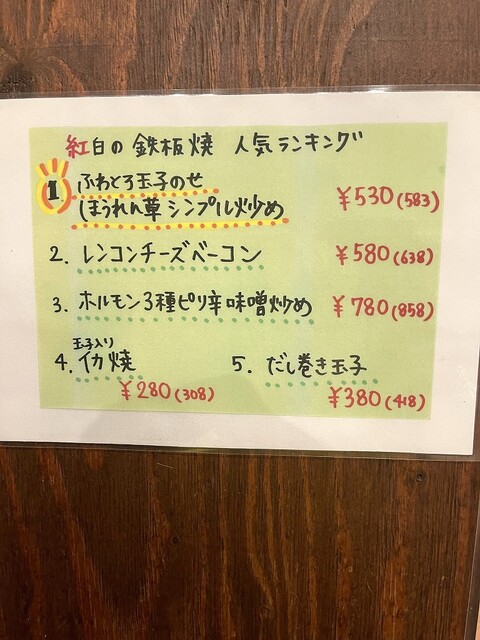 紅白の鉄板焼 人気ランキング
1 ふわとろ玉子のせ
ほうれん草シンプル炒め ¥530(583)
2. レンコンチーズベーコン ¥580(638)
3. ホルモン3種ピリ辛味噌炒め ¥780(858)
玉子入り
4. イカ焼 5. だし巻き玉子
¥280(308) ¥380(418)